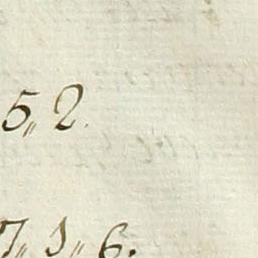 5,, 2.
7,, 1,, 6.